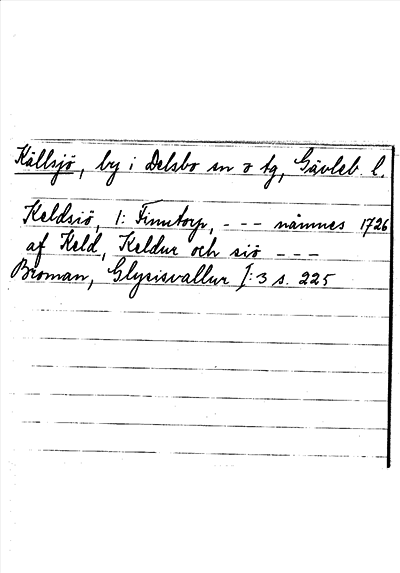 Källsjö, by i Delsbo sn o tg, Gävleb. l.
Keldsiö, 1: Finntorp, - - - nämnes 1726
af Keld, Keldur och siö - - -
Broman, Glysisvallur I:3 s. 225